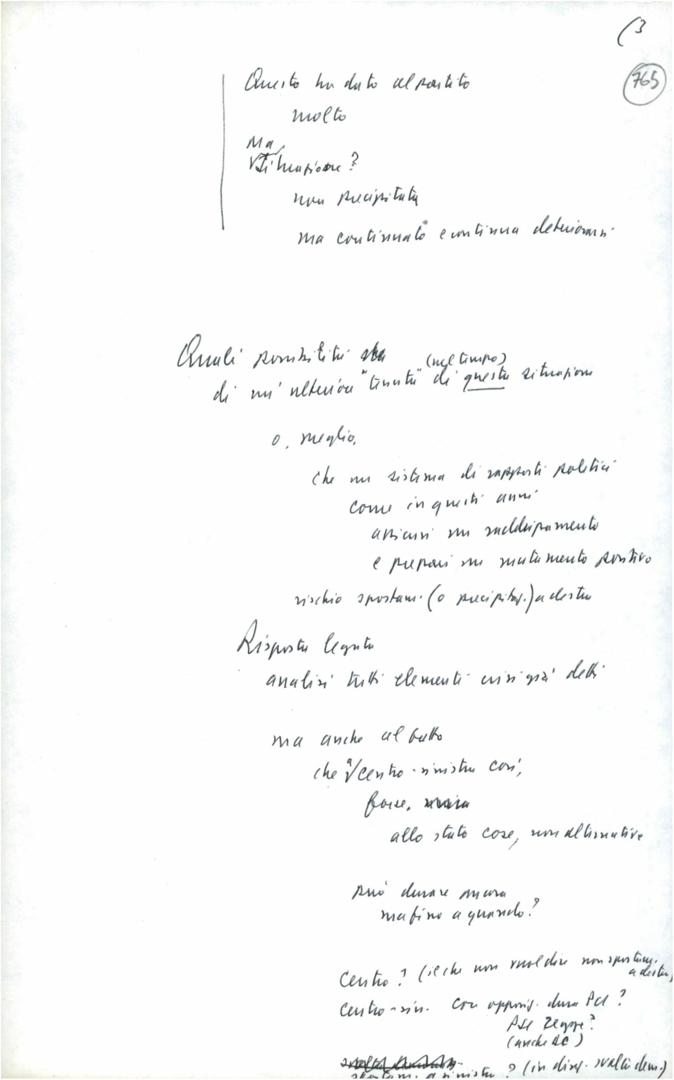 (3
765
Questo ha dato al partito
molto
Ma
Situazione?
non precipitata
ma continuato e continua deteriorarsi
Quali possibilità
(nel tempo)
di un'ulteriore "tenuta" di questa situazione
o, meglio,
che un sistema di rapporti politici
come in questi anni
assicuri un
e prepari un mutamento positivo
rischio spostam. (o precipitaz.) a destra
Risposta legata
analisi tutti elementi crisi già detti
ma anche al fatto
che a centro-sinistra così,
forse,
allo stato cose, non alternative
può durare ancora
ma fino a quando?
Centro? (il che non vuol dire non spostam.
a destra)
Centro-sin. con opposiz. dura Pci?
Psi regge?
(anche DC)
spostam. a sinistra? (in direz. svolta dem.)